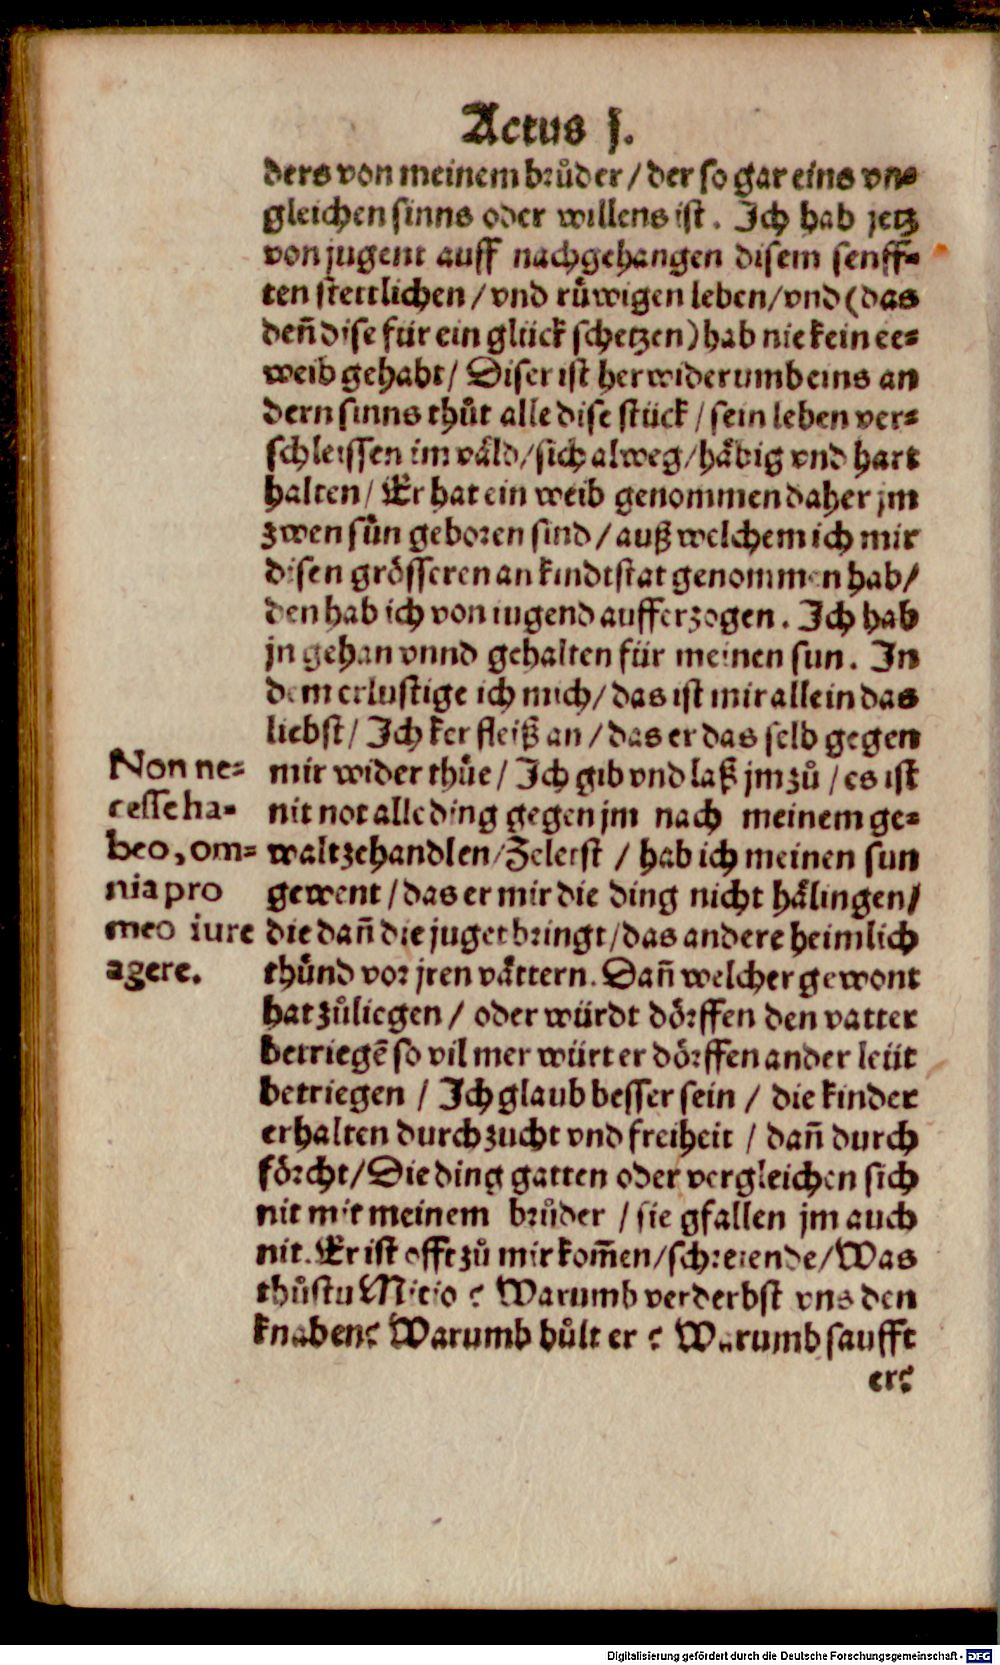 Actus j.
ders von meinem bruͦder / der so gar eins vn⸗
gleichen sinns oder willens ist. Ich hab jetz
von jugent auff nachgehangen disem senff⸗
ten stettlichen / vnd ruͤwigen leben / vnd (das
den̄ dise für ein glück schetzen) hab nie kein ee⸗
weib gehabt / Diser ist herwiderumb eins an
dern sinns thuͦt alle dise stück / sein leben ver⸗
schleissen im vaͤld / sich alweg / haͤbig vnd hart
halten / Er hat ein weib genommen daher jm
zwen suͤn geboren sind / auß welchem ich mir
disen groͤsseren an kindtstat genommen hab /
den hab ich von iugend aufferzogen. Ich hab
jn gehan vnnd gehalten für meinen sun. In
dem erlustige ich mich / das ist mir allein das
liebst / Ich ker fleiß an / das er das selb gegen
mir wider thuͤe / Ich gib vnd laß jm zuͦ / es ist
nit not alle ding gegen jm nach meinem ge⸗
walt zehandlen / Zeletst / hab ich meinen sun
gewent / das er mir die ding nicht haͤlingen /
die dan̄ die juget bringt / das andere heimlich
thuͤnd vor jren vaͤttern. Dan̄ welcher gewont
hat zuͦliegen / oder würdt doͤrffen den vatter
betriegē so vil mer würt er doͤrffen ander leüt
betriegen / Ich glaub besser sein / die kinder
erhalten durch zucht vnd freiheit / dan̄ durch
foͤrcht / Die ding gatten oder vergleichen sich
nit mit meinem bruͦder / sie gfallen jm auch
nit. Er ist offt zuͦ mir kom̄en / schreiende / Was
thuͦstu Mitio ? Warumb verderbst vns den
knaben? Warumb buͦlt er ? Warumb saufft
er?
Non ne⸗
cesse ha⸗
beo, om⸗
nia pro
meo iure
agere.
Digitalisierung gefördert durch die Deutsche Forschungsgemeinschaft - DFG